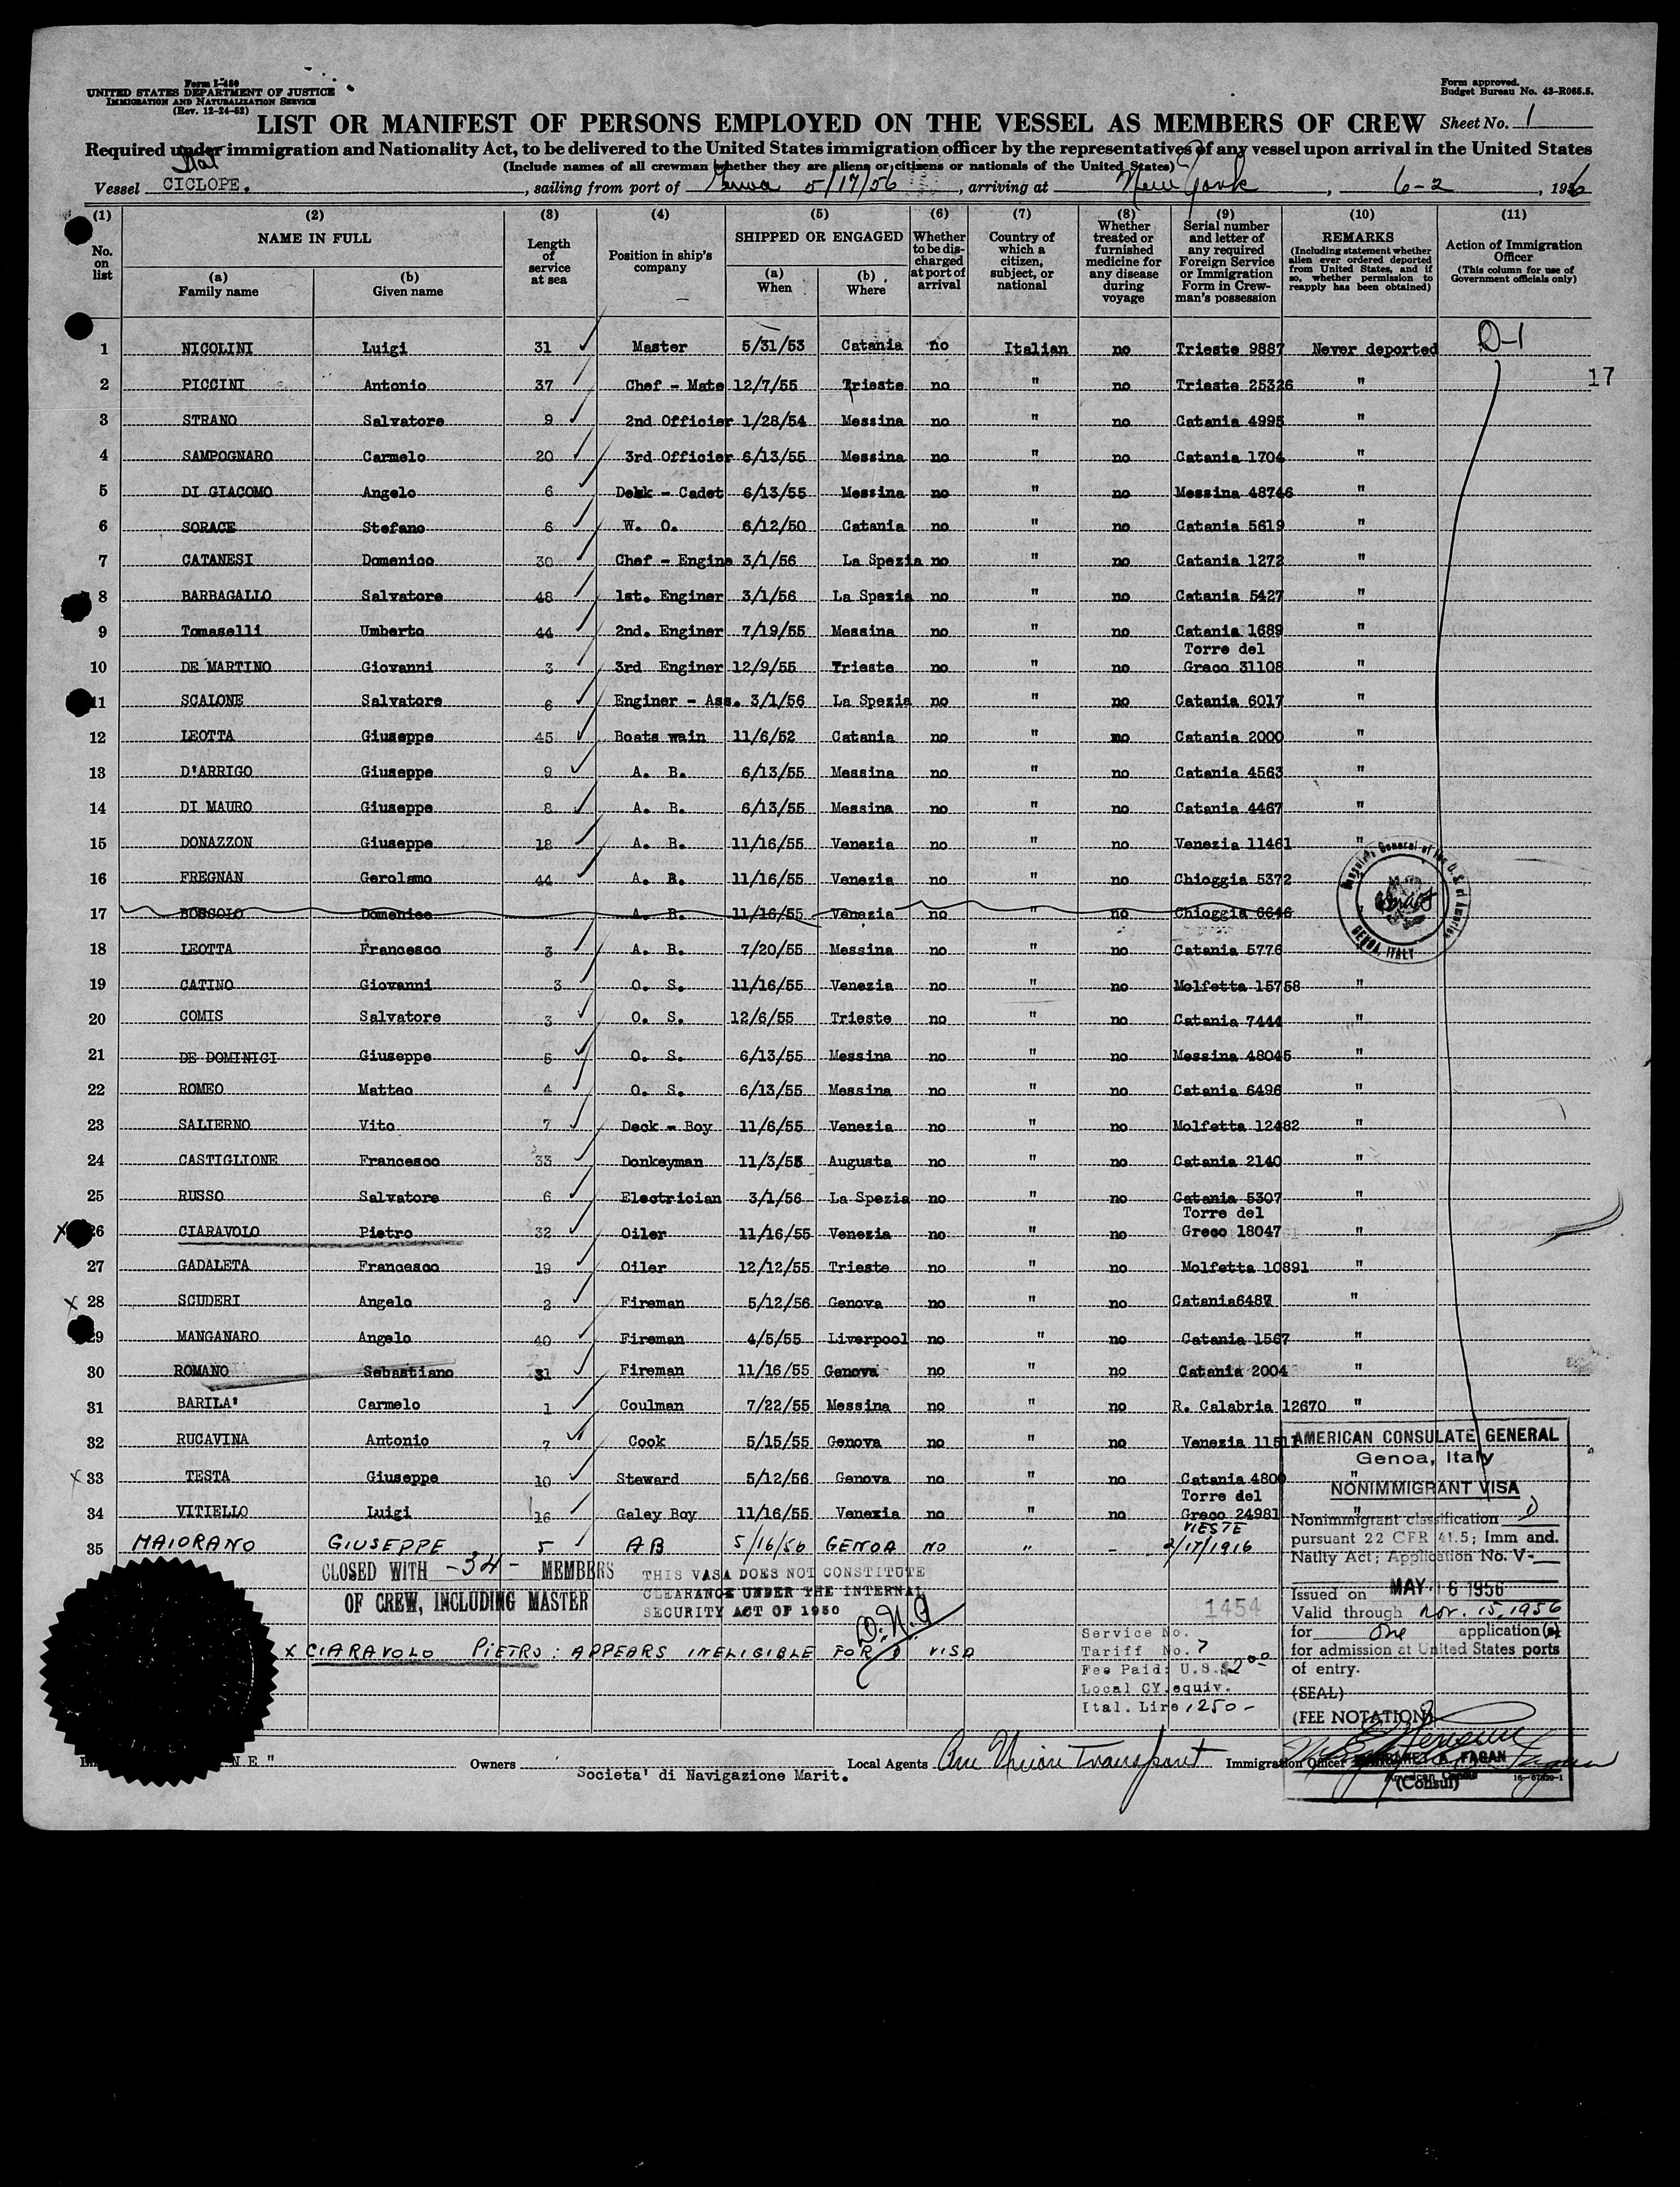 Form I-480
UNITED STATES DEPARTMENT OF JUSTICE
IMMIGRATION AND NATURALIZATION SERVICE
(Rev. 12-24-52)
Form approved.
Budget Bureau No. 43-R065.5.
LIST OR MANIFEST OF PERSONS EMPLOYED ON THE VESSEL AS MEMBERS OF CREW Sheet No. 1
Required under immigration and Nationality Act, to be delivered to the United States immigration officer by the representatives of any vessel upon arrival in the United States
(Include names of all crewman whether they are aliens or citizens or nationals of the United States)
Vessel Ital CICLOPE. , sailing from port of Genoa 5/17/56 , arriving at New York , 6-2 , 1956
(1) (2) (3) (4) (5) (6) (7) (8) (9) (10) (11)
No. on list
NAME IN FULL
(a) Family name
(b) Given name
Length of service at sea
Position in ship's company
SHIPPED OR ENGAGED
(a) When
(b) Where
Whether to be discharged at port of arrival
Country of which a citizen, subject, or national
Whether treated or furnished medicine for any disease during voyage
Serial number and letter of any required Foreign Service or Immigration Form in Crewman's possession
REMARKS
(Including statement whether alien ever ordered deported from United States, and if so, whether permission to reapply has been obtained)
Action of Immigration Officer
(This column for use of Government officials only)
1 NICOLINI Luigi 31 Master 5/31/53 Catania no Italian no Trieste 9887 Never deported D-1
17
2 PICCINI Antonio 37 Chef - Mate 12/7/55 Trieste no " no Trieste 25326 "
3 STRANO Salvatore 9 2nd Officier 1/28/54 Messina no " no Catania 4995 "
4 SAMPOGNARO Carmelo 20 3rd Officier 6/13/55 Messina no " no Catania 1704 "
5 DI GIACOMO Angelo 6 Dekk - Cadet 6/13/55 Messina no " no Messina 48746 "
6 SORACE Stefano 6 W. O. 6/12/50 Catania no " no Catania 5619 "
7 CATANESI Domenico 30 Chef - Engine 3/1/56 La Spezia no " no Catania 1272 "
8 BARBAGALLO Salvatore 48 1st. Enginer 3/1/56 La Spezia no " no Catania 5427 "
9 Tomaselli Umberto 44 2nd. Enginer 7/19/55 Messina no " no Catania 1689 "
10 DE MARTINO Giovanni 3 3rd Enginer 12/9/55 Trieste no " no Torre del Greco 31108 "
11 SCALONE Salvatore 6 Enginer - Ass. 3/1/56 La Spezia no " no Catania 6017 "
12 LEOTTA Giuseppe 45 Boats wain 11/6/52 Catania no " no Catania 2000 "
13 D'ARRIGO Giuseppe 9 A. B. 6/13/55 Messina no " no Catania 4563 "
14 DI MAURO Giuseppe 8 A. B. 6/13/55 Messina no " no Catania 4467 "
15 DONAZZON Giuseppe 18 A. B. 11/16/55 Venezia no " no Venezia 11461 "
16 FREGNAN Gerolamo 44 A. B. 11/16/55 Venezia no " no Chioggia 5372
17 BOSSOLO Domenico A. B. 11/16/55 Venezia no " no Chioggia 6646
Consulate General of the U.S. of America
GENOA, ITALY
18 LEOTTA Francesco 3 A. B. 7/20/55 Messina no " no Catania 5776
19 CATINO Giovanni 3 O. S. 11/16/55 Venezia no " no Molfetta 15758 "
20 COMIS Salvatore 3 O. S. 12/6/55 Trieste no " no Catania 7444 "
21 DE DOMINICI Giuseppe 5 O. S. 6/13/55 Messina no " no Messina 48045 "
22 ROMEO Matteo 4 O. S. 6/13/55 Messina no " no Catania 6496 "
23 SALIERNO Vito 7 Deck - Boy 11/6/55 Venezia no " no Molfetta 12482 "
24 CASTIGLIONE Francesco 33 Donkeyman 11/3/55 Augusta no " no Catania 2140 "
25 RUSSO Salvatore 6 Electrician 3/1/56 La Spezia no " no Catania 5307 "
x 26 CIARAVOLO Pietro 32 Oiler 11/16/55 Venezia no " no Torre del Greco 18047 "
27 GADALETA Francesco 19 Oiler 12/12/55 Trieste no " no Molfetta 10891 "
x 28 SCUDERI Angelo 2 Fireman 5/12/56 Genova no " no Catania6487 "
29 MANGANARO Angelo 40 Fireman 4/5/55 Liverpool no " no Catania 1567 "
30 ROMANO Sebastiano 31 Fireman 11/16/55 Genova no " no Catania 2004 "
31 BARILA' Carmelo 1 Coulman 7/22/55 Messina no " no R. Calabria 12670 "
32 RUCAVINA Antonio 7 Cook 5/15/55 Genova no " no Venezia 11511
x 33 TESTA Giuseppe 10 Steward 5/12/56 Genova no " no Catania 4800 "
34 VITIELLO Luigi 16 Galey Boy 11/16/55 Venezia no " no Torre del Greco 24981 "
35 MAIORANO GIUSEPPE 5 AB 5/16/56 GENOA NO " - VIESTE 2/17/1916
CLOSED WITH -34- MEMBERS
OF CREW, INCLUDING MASTER
THIS VASA DOES NOT CONSTITUTE
CLEARANCE UNDER THE INTERNAL
SECURITY ACT OF 1950
x CIARAVOLO PIETRO: APPEARS INELIGIBLE FOR D VISA
1454
Service No.
Tariff No. 7
Fee Paid: U.S.$2.00
Local CY.equiv.
Ital. Lire 1250-
AMERICAN CONSULATE GENERAL
Genoa, Italy
NONIMMIGRANT VISA
Nonimmigrant classification D
pursuant 22 CFR 41.5; Imm and.
Natlty Act; Application No. V-
Issued on MAY 16 1956
Valid through Nov. 15, 1956
for One application(s)
for admission at United States ports
of entry.
(SEAL)
(FEE NOTATION)
MARGARET A. FAGAN
American Consul
(Consul)
NE" Owners Societa' di Navigazione Marit. Local Agents Am Union Transport Immigration Officer
16-67629-1